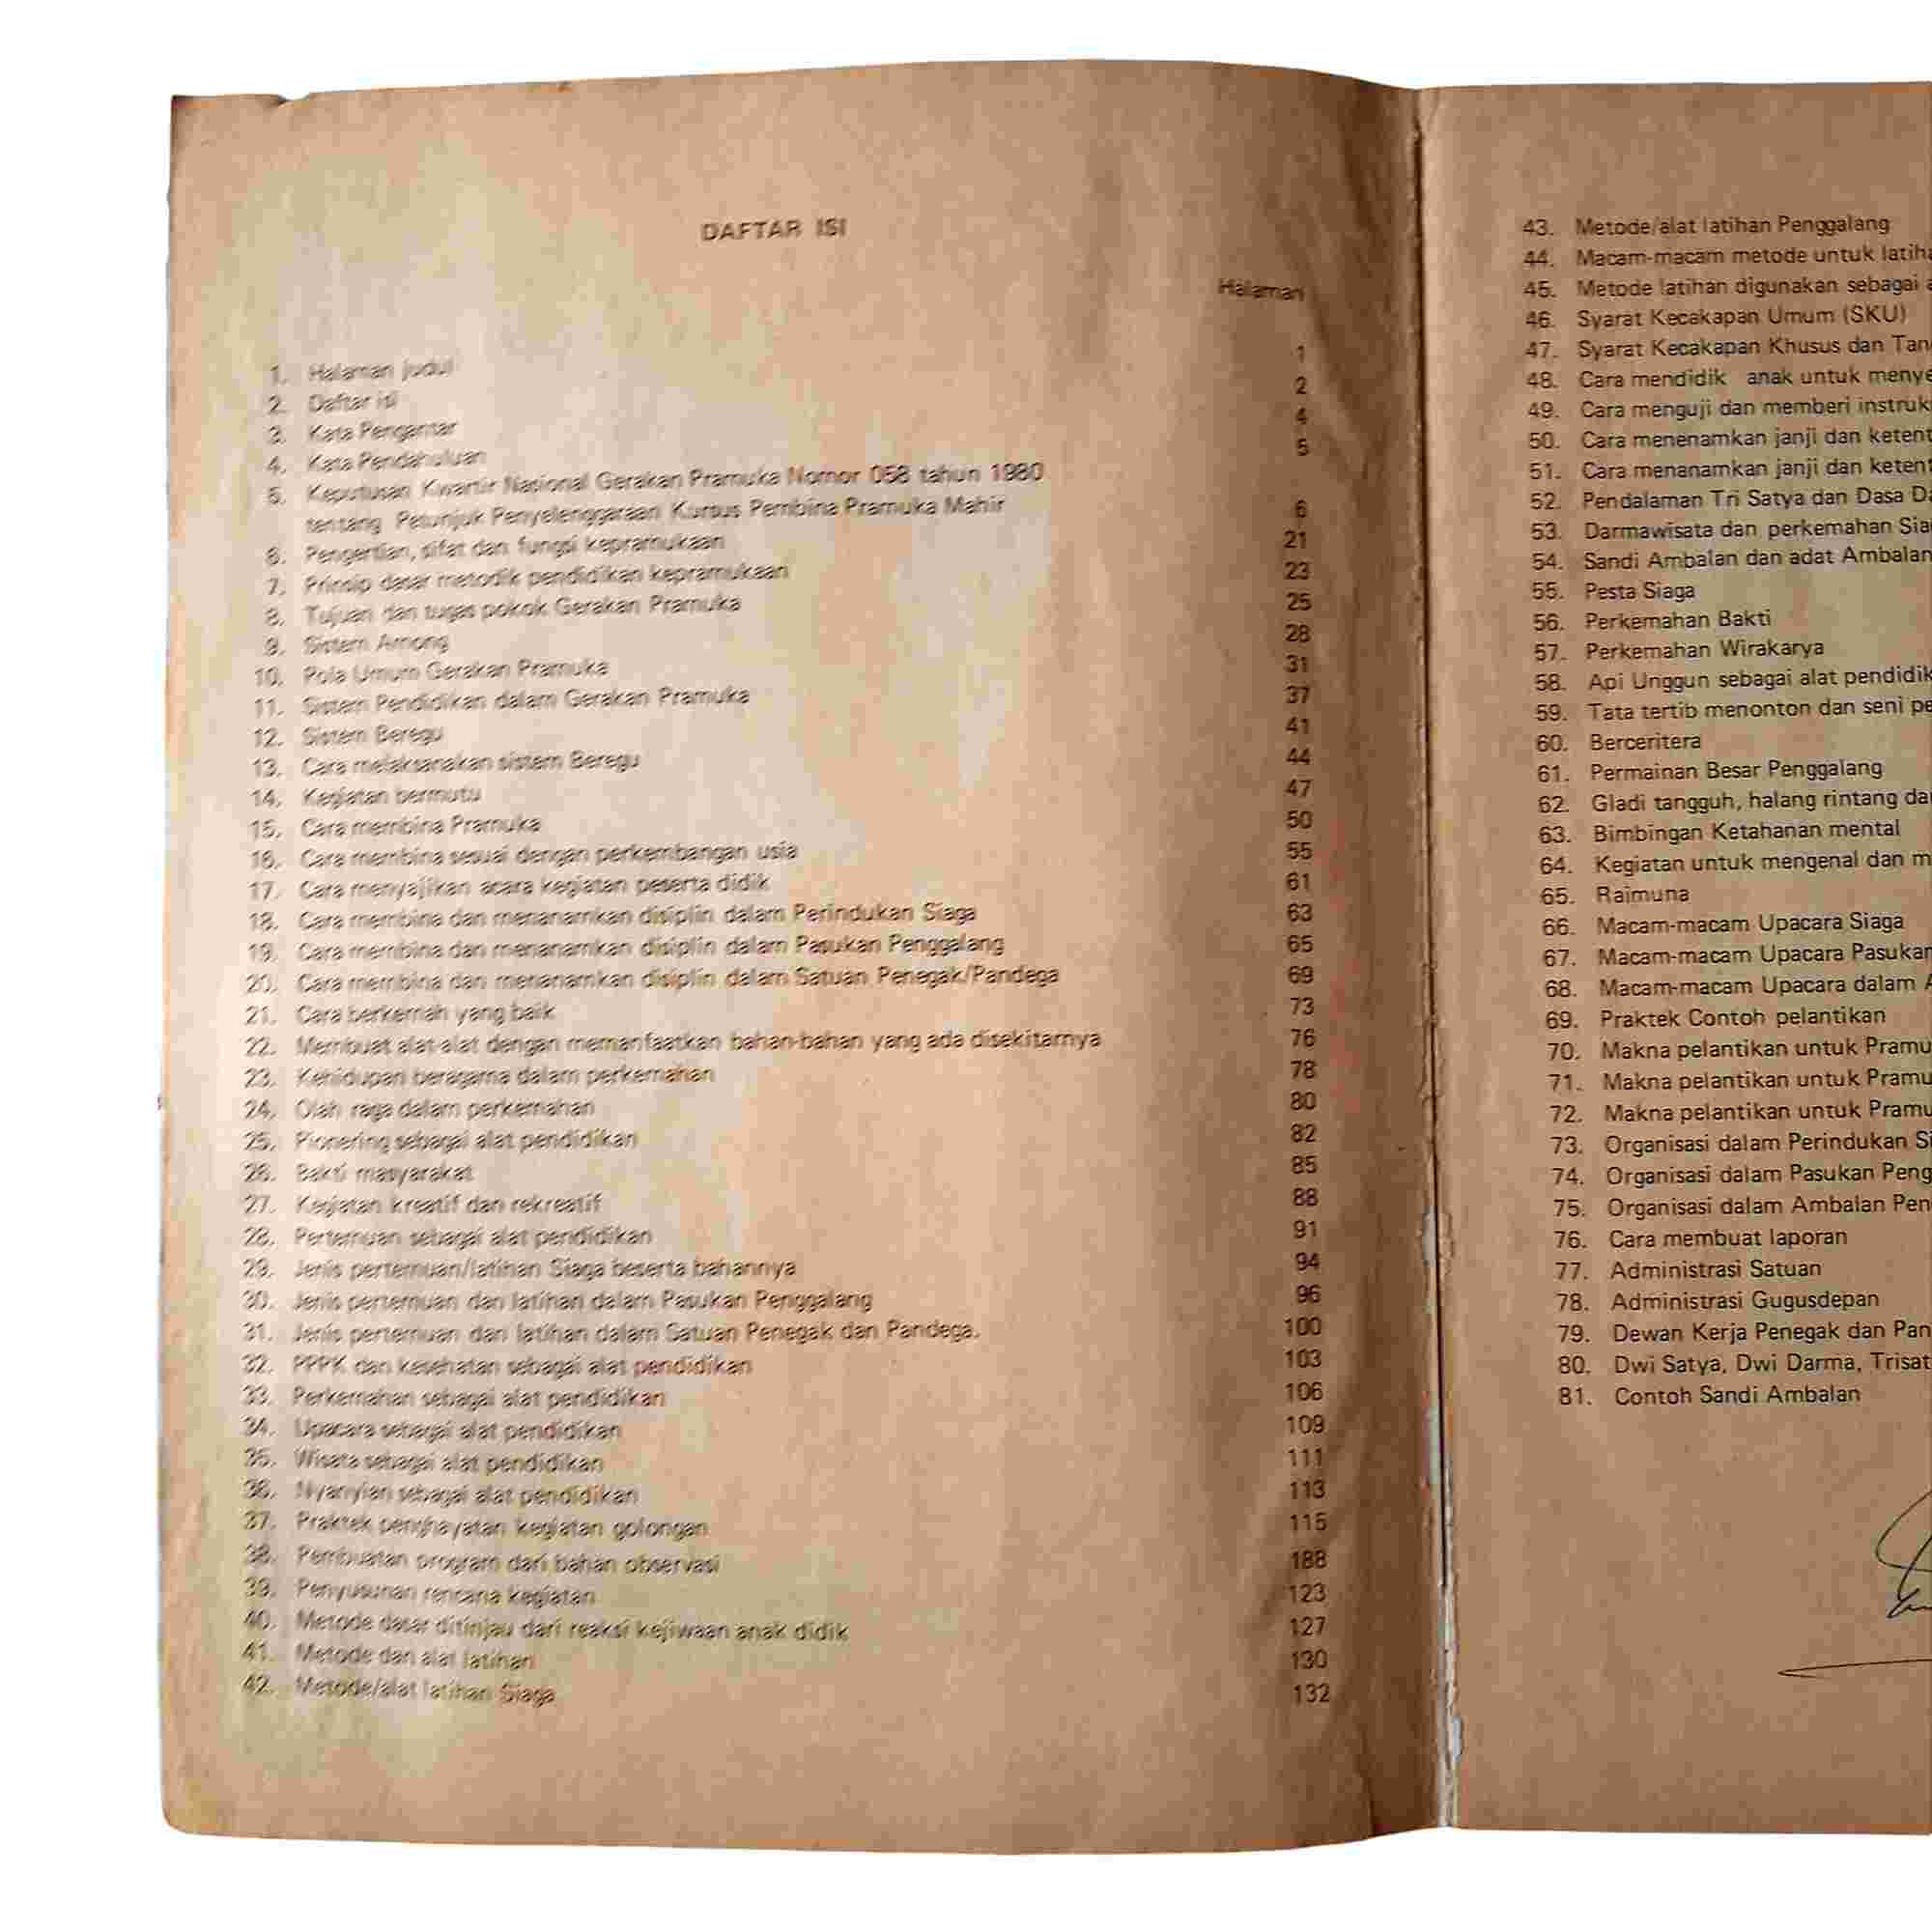 DAFTAR ISI
Halaman
1. Halaman judul 1
2. Daftar isi 2
3. Kata Pengantar 4
4. Kata Pendahuluan 5
5. Keputusan Kwartir Nasional Gerakan Pramuka Nomor 058 tahun 1980
tentang Petunjuk Penyelenggaraan Kursus Pembina Pramuka Mahir 6
6. Pengertian, sifat dan fungsi kepramukaan 21
7. Prinsip dasar metodik pendidikan kepramukaan 23
8. Tujuan dan tugas pokok Gerakan Pramuka 25
9. Sistem Among 28
10. Pola Umum Gerakan Pramuka 31
11. Sistem Pendidikan dalam Gerakan Pramuka 37
12. Sistem Beregu 41
13. Cara melaksanakan sistem Beregu 44
14. Kegiatan bermutu 47
15. Cara membina Pramuka 50
16. Cara membina sesuai dengan perkembangan usia 55
17. Cara menyajikan acara kegiatan peserta didik 61
18. Cara membina dan menanamkan disiplin dalam Perindukan Siaga 63
19. Cara membina dan menanamkan disiplin dalam Pasukan Penggalang 65
20. Cara membina dan menanamkan disiplin dalam Satuan Penegak/Pandega 69
21. Cara berkemah yang baik 73
22. Membuat alat-alat dengan memanfaatkan bahan-bahan yang ada disekitarnya 76
23. Kehidupan beragama dalam perkemahan 78
24. Olah raga dalam perkemahan 80
25. Pionering sebagai alat pendidikan 82
26. Bakti masyarakat 85
27. Kegiatan kreatif dan rekreatif 88
28. Pertemuan sebagai alat pendidikan 91
29. Jenis pertemuan/latihan Siaga beserta bahannya 94
30. Jenis pertemuan dan latihan dalam Pasukan Penggalang 96
31. Jenis pertemuan dan latihan dalam Satuan Penegak dan Pandega. 100
32. PPPK dan kesehatan sebagai alat pendidikan 103
33. Perkemahan sebagai alat pendidikan 106
34. Upacara sebagai alat pendidikan 109
35. Wisata sebagai alat pendidikan 111
36. Nyanyian sebagai alat pendidikan 113
37. Praktek penghayatan kegiatan golongan 115
38. Pembuatan program dari bahan observasi 188
39. Penyusunan rencana kegiatan 123
40. Metode dasar ditinjau dari reaksi kejiwaan anak didik 127
41. Metode dan alat latihan 130
42. Metode/alat latihan Siaga 132
43. Metode/alat latihan Penggalang
44. Macam-macam metode untuk
45. Metode latihan digunakan sebagai
46. Syarat Kecakapan Umum (SKU)
47. Syarat Kecakapan Khusus dan
48. Cara mendidik anak untuk
49. Cara menguji dan memberi
50. Cara menenamkan janji dan
51. Cara menanamkan janji dan
52. Pendalaman Tri Satya dan Dasa
53. Darmawisata dan perkemahan
54. Sandi Ambalan dan adat Ambalan
55. Pesta Siaga
56. Perkemahan Bakti
57. Perkemahan Wirakarya
58. Api Unggun sebagai alat
59. Tata tertib menonton dan seni
60. Berceritera
61. Permainan Besar Penggalang
62. Gladi tangguh, halang rintang
63. Bimbingan Ketahanan mental
64. Kegiatan untuk mengenal dan
65. Raimuna
66. Macam-macam Upacara Siaga
67. Macam-macam Upacara
68. Macam-macam Upacara dalam
69. Praktek Contoh pelantikan
70. Makna pelantikan untuk
71. Makna pelantikan untuk
72. Makna pelantikan untuk
73. Organisasi dalam Perindukan
74. Organisasi dalam Pasukan
75. Organisasi dalam Ambalan
76. Cara membuat laporan
77. Administrasi Satuan
78. Administrasi Gugusdepan
79. Dewan Kerja Penegak dan
80. Dwi Satya, Dwi Darma,
81. Contoh Sandi Ambalan